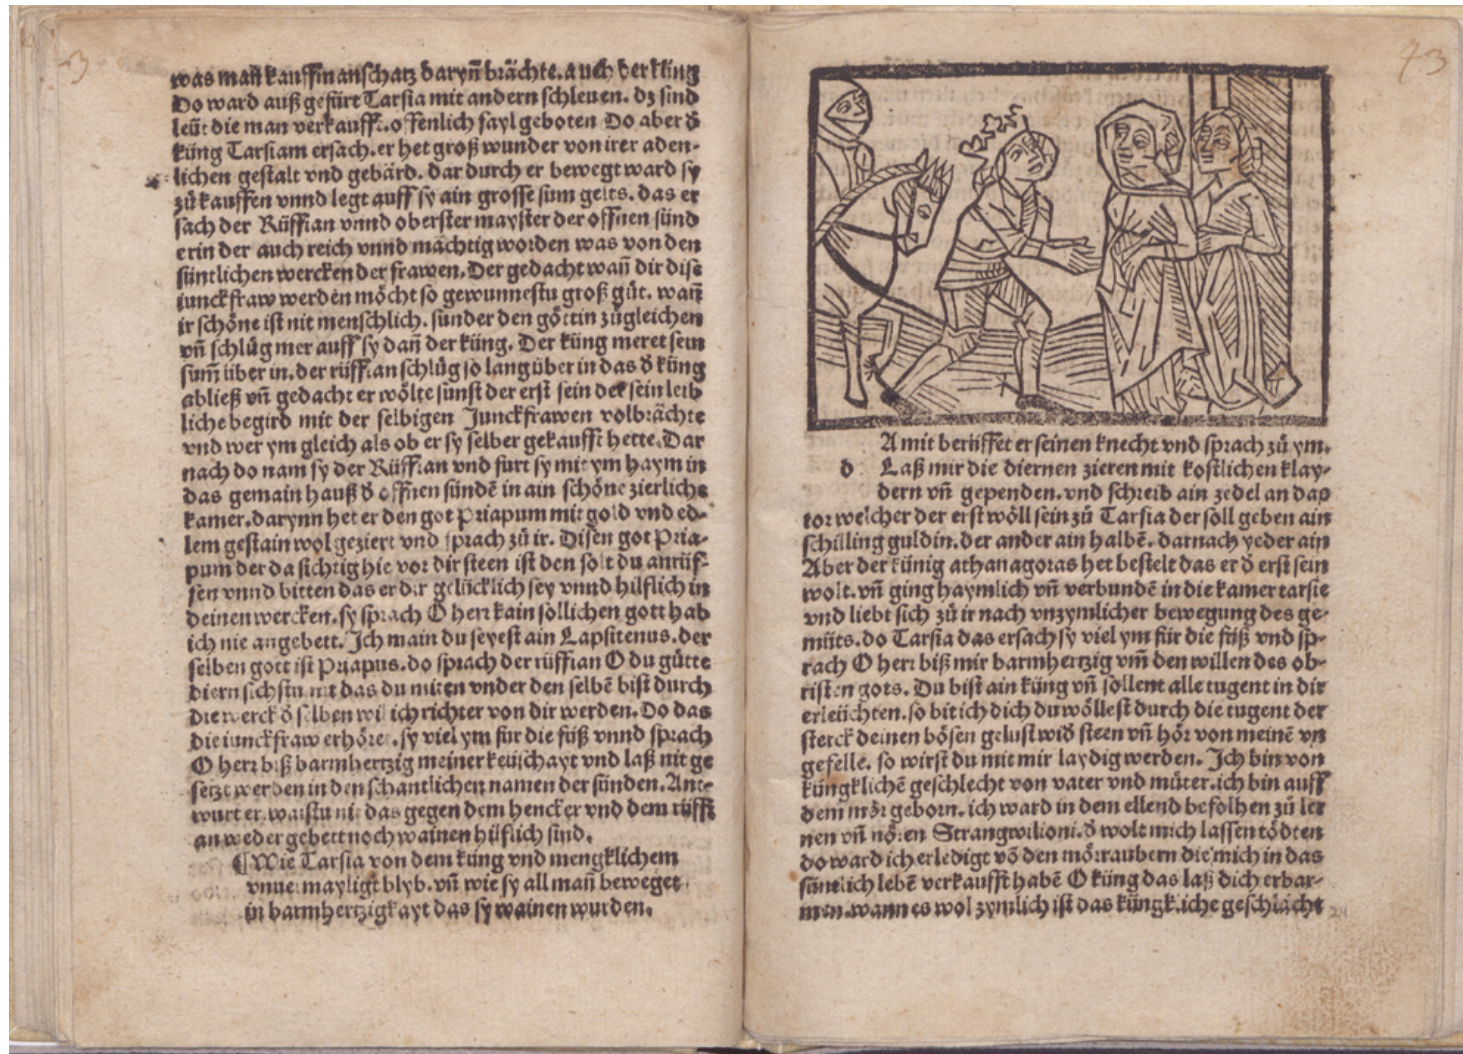 was mañ kauffmanschatz daryñ brächte. auch der küng
Do ward auß gefürt Tarsia mit andern schleuen. dz sind
leüt die man verkaufft. offenlich fayl geboten Do aber d̕
küng Tarsiam ersach. er het groß wunder von irer aden-
lichen gestalt vnd gebärd. dar durch er bewegt ward sy
zů kauffen vnnd legt auff sy ain grosse sum gelts. das er
sach der Rüffian vnnd oberster mayster der offnen sünd
erin der auch reich vnnd mächtig worden was von den
süntlichen wercken der frawen. Der gedacht wañ dir dise
iunckfraw werden möcht so gewunnestu groß gůt. wañ
ir schöne ist nit menschlich. sunder den göttin zůgleichen
vñ schlůg mer auff sy dañ der küng. Der küng meret sein
sum̃ über in. der rüffian schlůg so lang über in das d̕ küng
abließ vñ gedacht er wölte sunst der erst sein der sein leib
liche begird mit der selbigen Junckfrawen volbrächte
vnd wer ym gleich als ob er sy selber gekaufft hette. Dar
nach do nam sy der Rüffian vnd furt sy mit ym haym in
das gemain hauß d̕ offnen sündē in ain schöne zierliche
kamer. darynn het er den got Priapum mit gold vnd ed-
lem gestain wol geziert vnd sprach zů ir. Disen got Pria-
pum der da sichtig hie vor dir steen ist den solt du anrüf-
fen vnnd bitten das er dir gelücklich sey vnnd hilflich in
deinen wercken. sy sprach O herr kain söllichen gott hab
ich nie angebett. Ich main du seyest ain Lapsitenus. der
selben gott ist Priapus. do sprach der rüffian O du gůtte
diern sichstu nit das du miten vnder den selbē bist durch
die werck d̕ selben wil ich richter von dir werden. Do das
die iunckfraw erhöret. sy viel ym für die füß vnnd sprach
O herr biß barmhertzig meiner keüschayt vnd laß nit ge
setzt werden in den schantlichen namen der sünden. Ant-
wurt er. waistu nit das gegen dem hencker vnd dem rüffi
an weder gebett noch wainen hilflich sind.
¶ Wie Tarsia von dem küng vnd mengklichem
vnuermayligt blyb. vñ wie sy all mañ beweget
in barmhertzigkayt das sy wainen wurden.
43
Amit berüffet er seinen knecht vnd sprach zů ym.
d Laß mir die diernen zieren mit kostlichen klay-
dern vñ gependen. vnd schreib ain zedel an das
tor welcher der erst wöll sein zů Tarsia der söll geben ain
schilling guldin. der ander ain halbē. darnach yeder ain
Aber der künig athanagoras het bestelt das er d̕ erst sein
wolt. vñ ging haymlich vñ verbundē in die kamer tarsie
vnd liebt sich zů ir nach vnzymlicher bewegung des ge-
müts. do Tarsia das ersach sy viel ym für die füß vnd sp-
rach O herr biß mir barmhertzig vm̃ den willen des ob-
risten gots. Du bist ain küng vñ sollent alle tugent in dir
erleüchten. so bit ich dich du wöllest durch die tugent der
sterck deinen bösen gelust wid̕ steen vñ hör von meinē vn
gefelle. so wirst du mit mir laydig werden. Ich bin von
küngklichē geschlecht von vater vnd můter. ich bin auff
dem mör geborn. ich ward in dem ellend befolhen zů ler
nen vñ nören Strangwilioni. d̕ wolt mich lassen tödten
do ward ich erledigt vō den mörraubern die mich in das
süntlich lebē verkaufft habē O küng das laß dich erbar-
men. wann es wol zymlich ist das küngkliche geschlächt